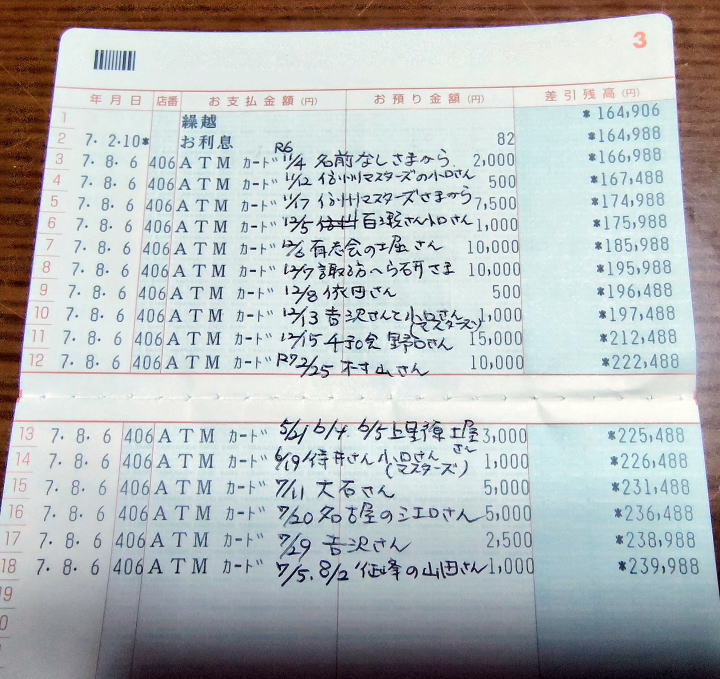 3
年月日 店番 お支払金額(円) お預り金額(円) 差引残高(円)
1 繰越 *164,906
2 7. 2.10* お利息 82 *164,988
R6
3 7. 8. 6 406 ATM カード 11/4 名前なしさまから 2,000 *166,988
4 7. 8. 6 406 ATM カード 11/12 信州マスターズの小口さん 500 *167,488
5 7. 8. 6 406 ATM カード 11/17 信州マスターズさまから 7,500 *174,988
6 7. 8. 6 406 ATM カード 12/5 百瀬さん小口さん 1,000 *175,988
7 7. 8. 6 406 ATM カード 12/6 有志会の土屋さん 10,000 *185,988
8 7. 8. 6 406 ATM カード 12/7 諏訪へら研さま 10,000 *195,988
9 7. 8. 6 406 ATM カード 12/8 依田さん 500 *196,488
10 7. 8. 6 406 ATM カード 12/13 吉沢さんと小口さん 1,000 *197,488
(マスターズ)
11 7. 8. 6 406 ATM カード 12/15 野口さん 15,000 *212,488
12 7. 8. 6 406 ATM カード R7 2/25 村山さん 10,000 *222,488
13 7. 8. 6 406 ATM カード 5/21 6/4. 6/5 土屋 3,000 *225,488
さん
14 7. 8. 6 406 ATM カード 6/19 侍井さん 小口さん 1,000 *226,488
(マスターズ)
15 7. 8. 6 406 ATM カード 7/11 大石さん 5,000 *231,488
16 7. 8. 6 406 ATM カード 7/20 名古屋の江口さん 5,000 *236,488
17 7. 8. 6 406 ATM カード 7/29 吉沢さん 2,500 *238,988
18 7. 8. 6 406 ATM カード 7/5. 8/2 の山田さん 1,000 *239,988
19